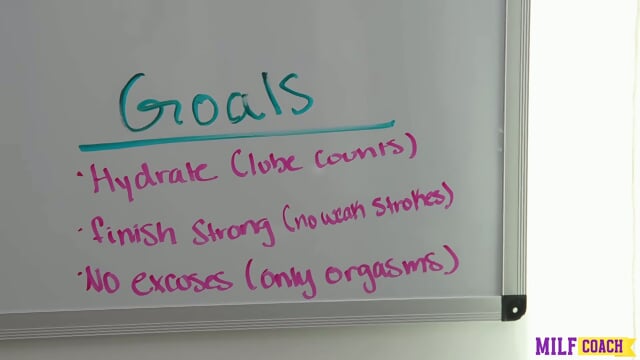 Goals
· Hydrate (lube counts)
· finish strong (no weak strokes)
· No excoses (only orgasms)
MILF COACH